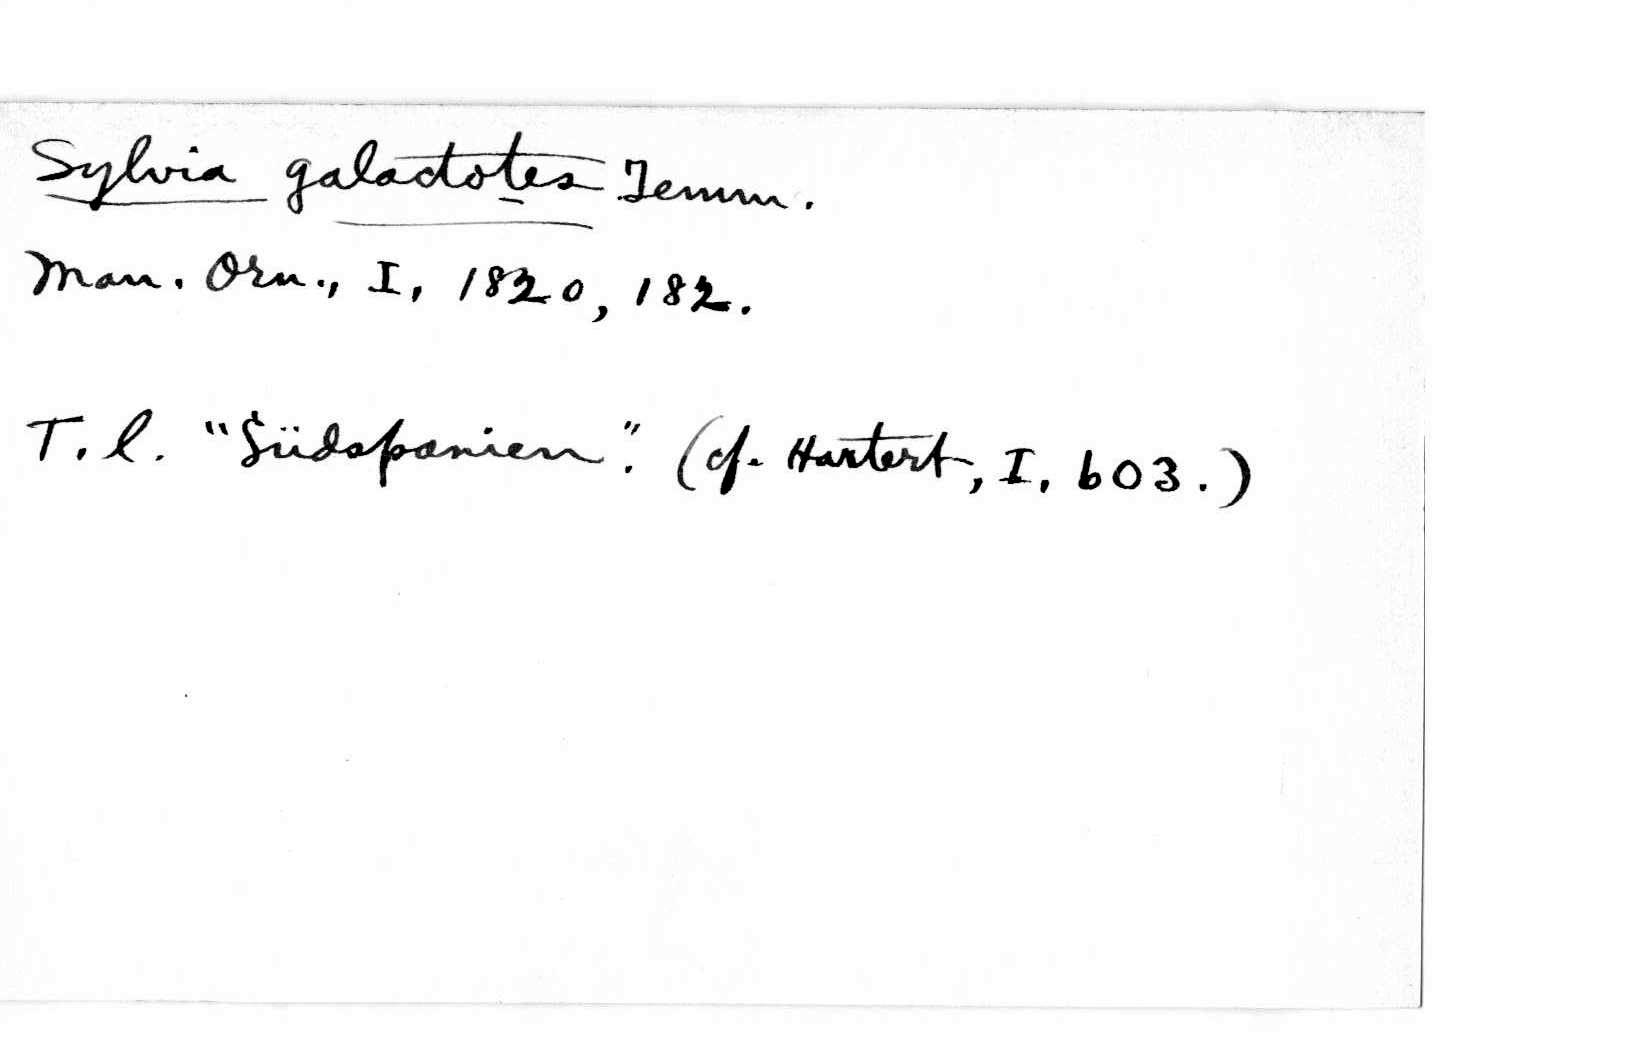 Sylvia galactotes Temm.
Man. Orn., I, 1820, 182.
T. l. "Südspanien". (cf. Hartert, I, 603.)